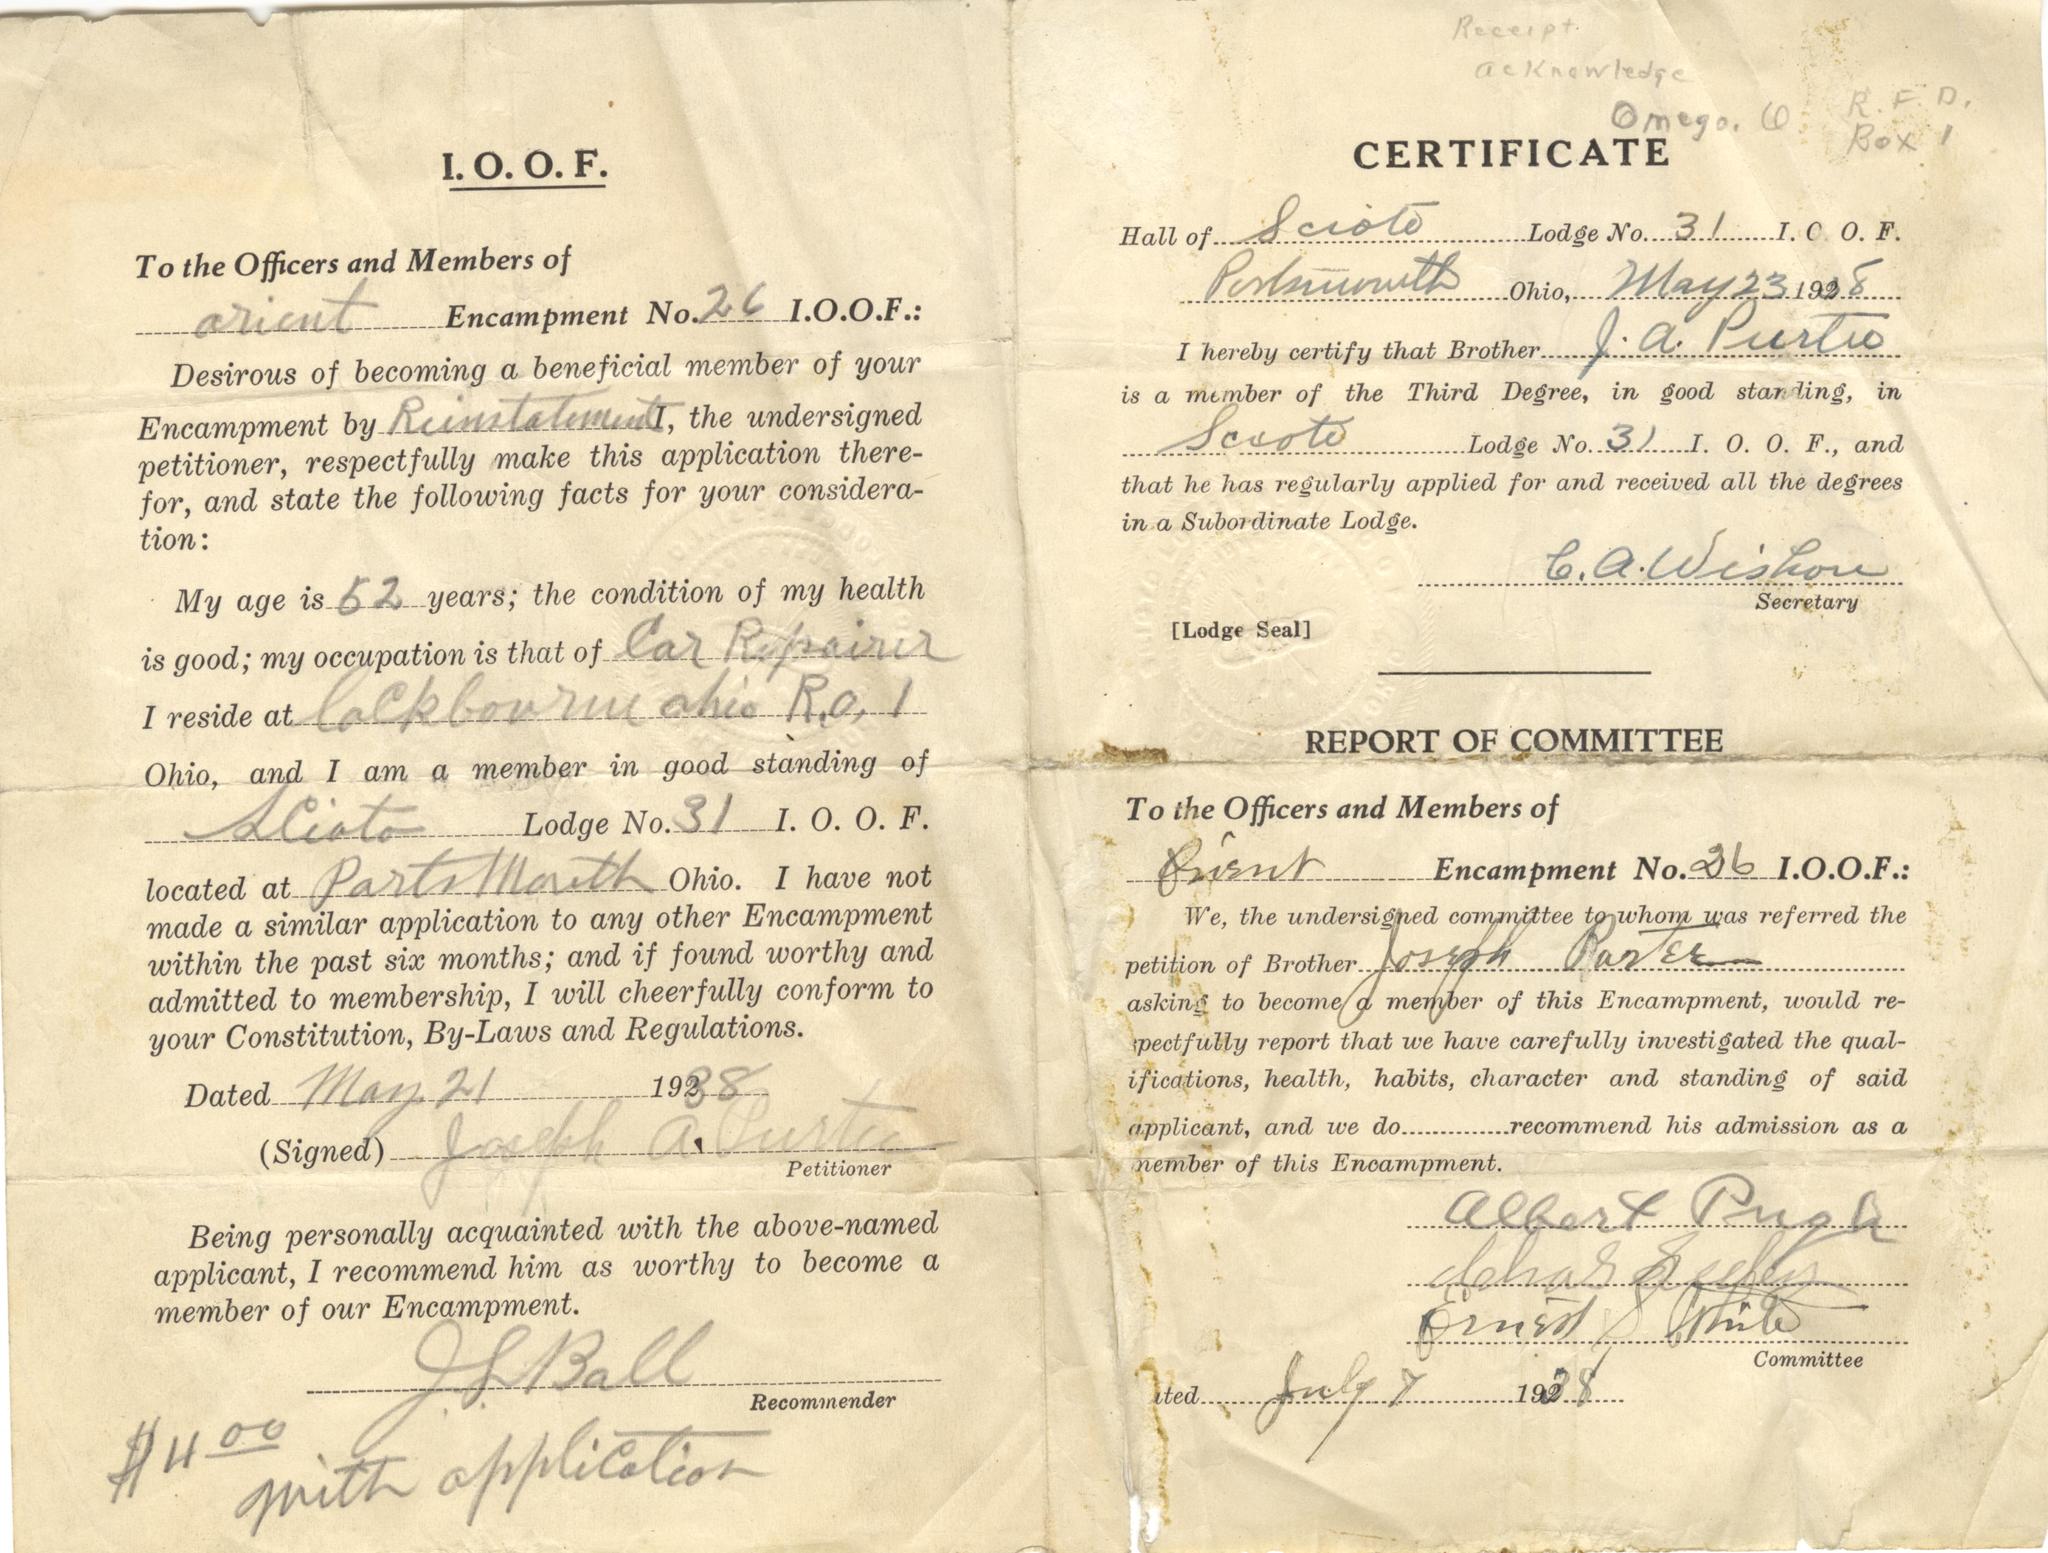 I.O.O.F.
To the Officers and Members of
orient Encampment No. 26 I.O.O.F.:
Desirous of becoming a beneficial member of your
Encampment by Reinstatement I, the undersigned
petitioner, respectfully make this application there-
for, and state the following facts for your considera-
tion:
My age is 52 years; the condition of my health
is good; my occupation is that of Car Repairer
I reside at Lockbourne ohio R.o. 1
Ohio, and I am a member in good standing of
Scioto Lodge No. 31 I. O. O. F.
located at PortsMouth Ohio. I have not
made a similar application to any other Encampment
within the past six months; and if found worthy and
admitted to membership, I will cheerfully conform to
your Constitution, By-Laws and Regulations.
Dated May. 21 1938
(Signed) Joseph A. Purtee
Petitioner
Being personally acquainted with the above-named
applicant, I recommend him as worthy to become a
member of our Encampment.
J L Ball
Recommender
$4 00
with application
Receipt.
acknowledge
Omego. O R. F. D.
Box 1
CERTIFICATE
Hall of Scioto Lodge No. 31 I. O. O. F.
Portsmouth Ohio, May 23 1938
I hereby certify that Brother J. A. Purtee
is a member of the Third Degree, in good standing, in
Scioto Lodge No. 31 I. O. O. F., and
that he has regularly applied for and received all the degrees
in a Subordinate Lodge.
C. A. Wishon
Secretary
[Lodge Seal]
REPORT OF COMMITTEE
To the Officers and Members of
Orient Encampment No. 26 I.O.O.F.:
We, the undersigned committee to whom was referred the
petition of Brother Joseph Purtee
asking to become a member of this Encampment, would re-
spectfully report that we have carefully investigated the qual-
ifications, health, habits, character and standing of said
applicant, and we do recommend his admission as a
member of this Encampment.
Albert Pugh
Chas
Ernest S White
Committee
ated July 7 1938